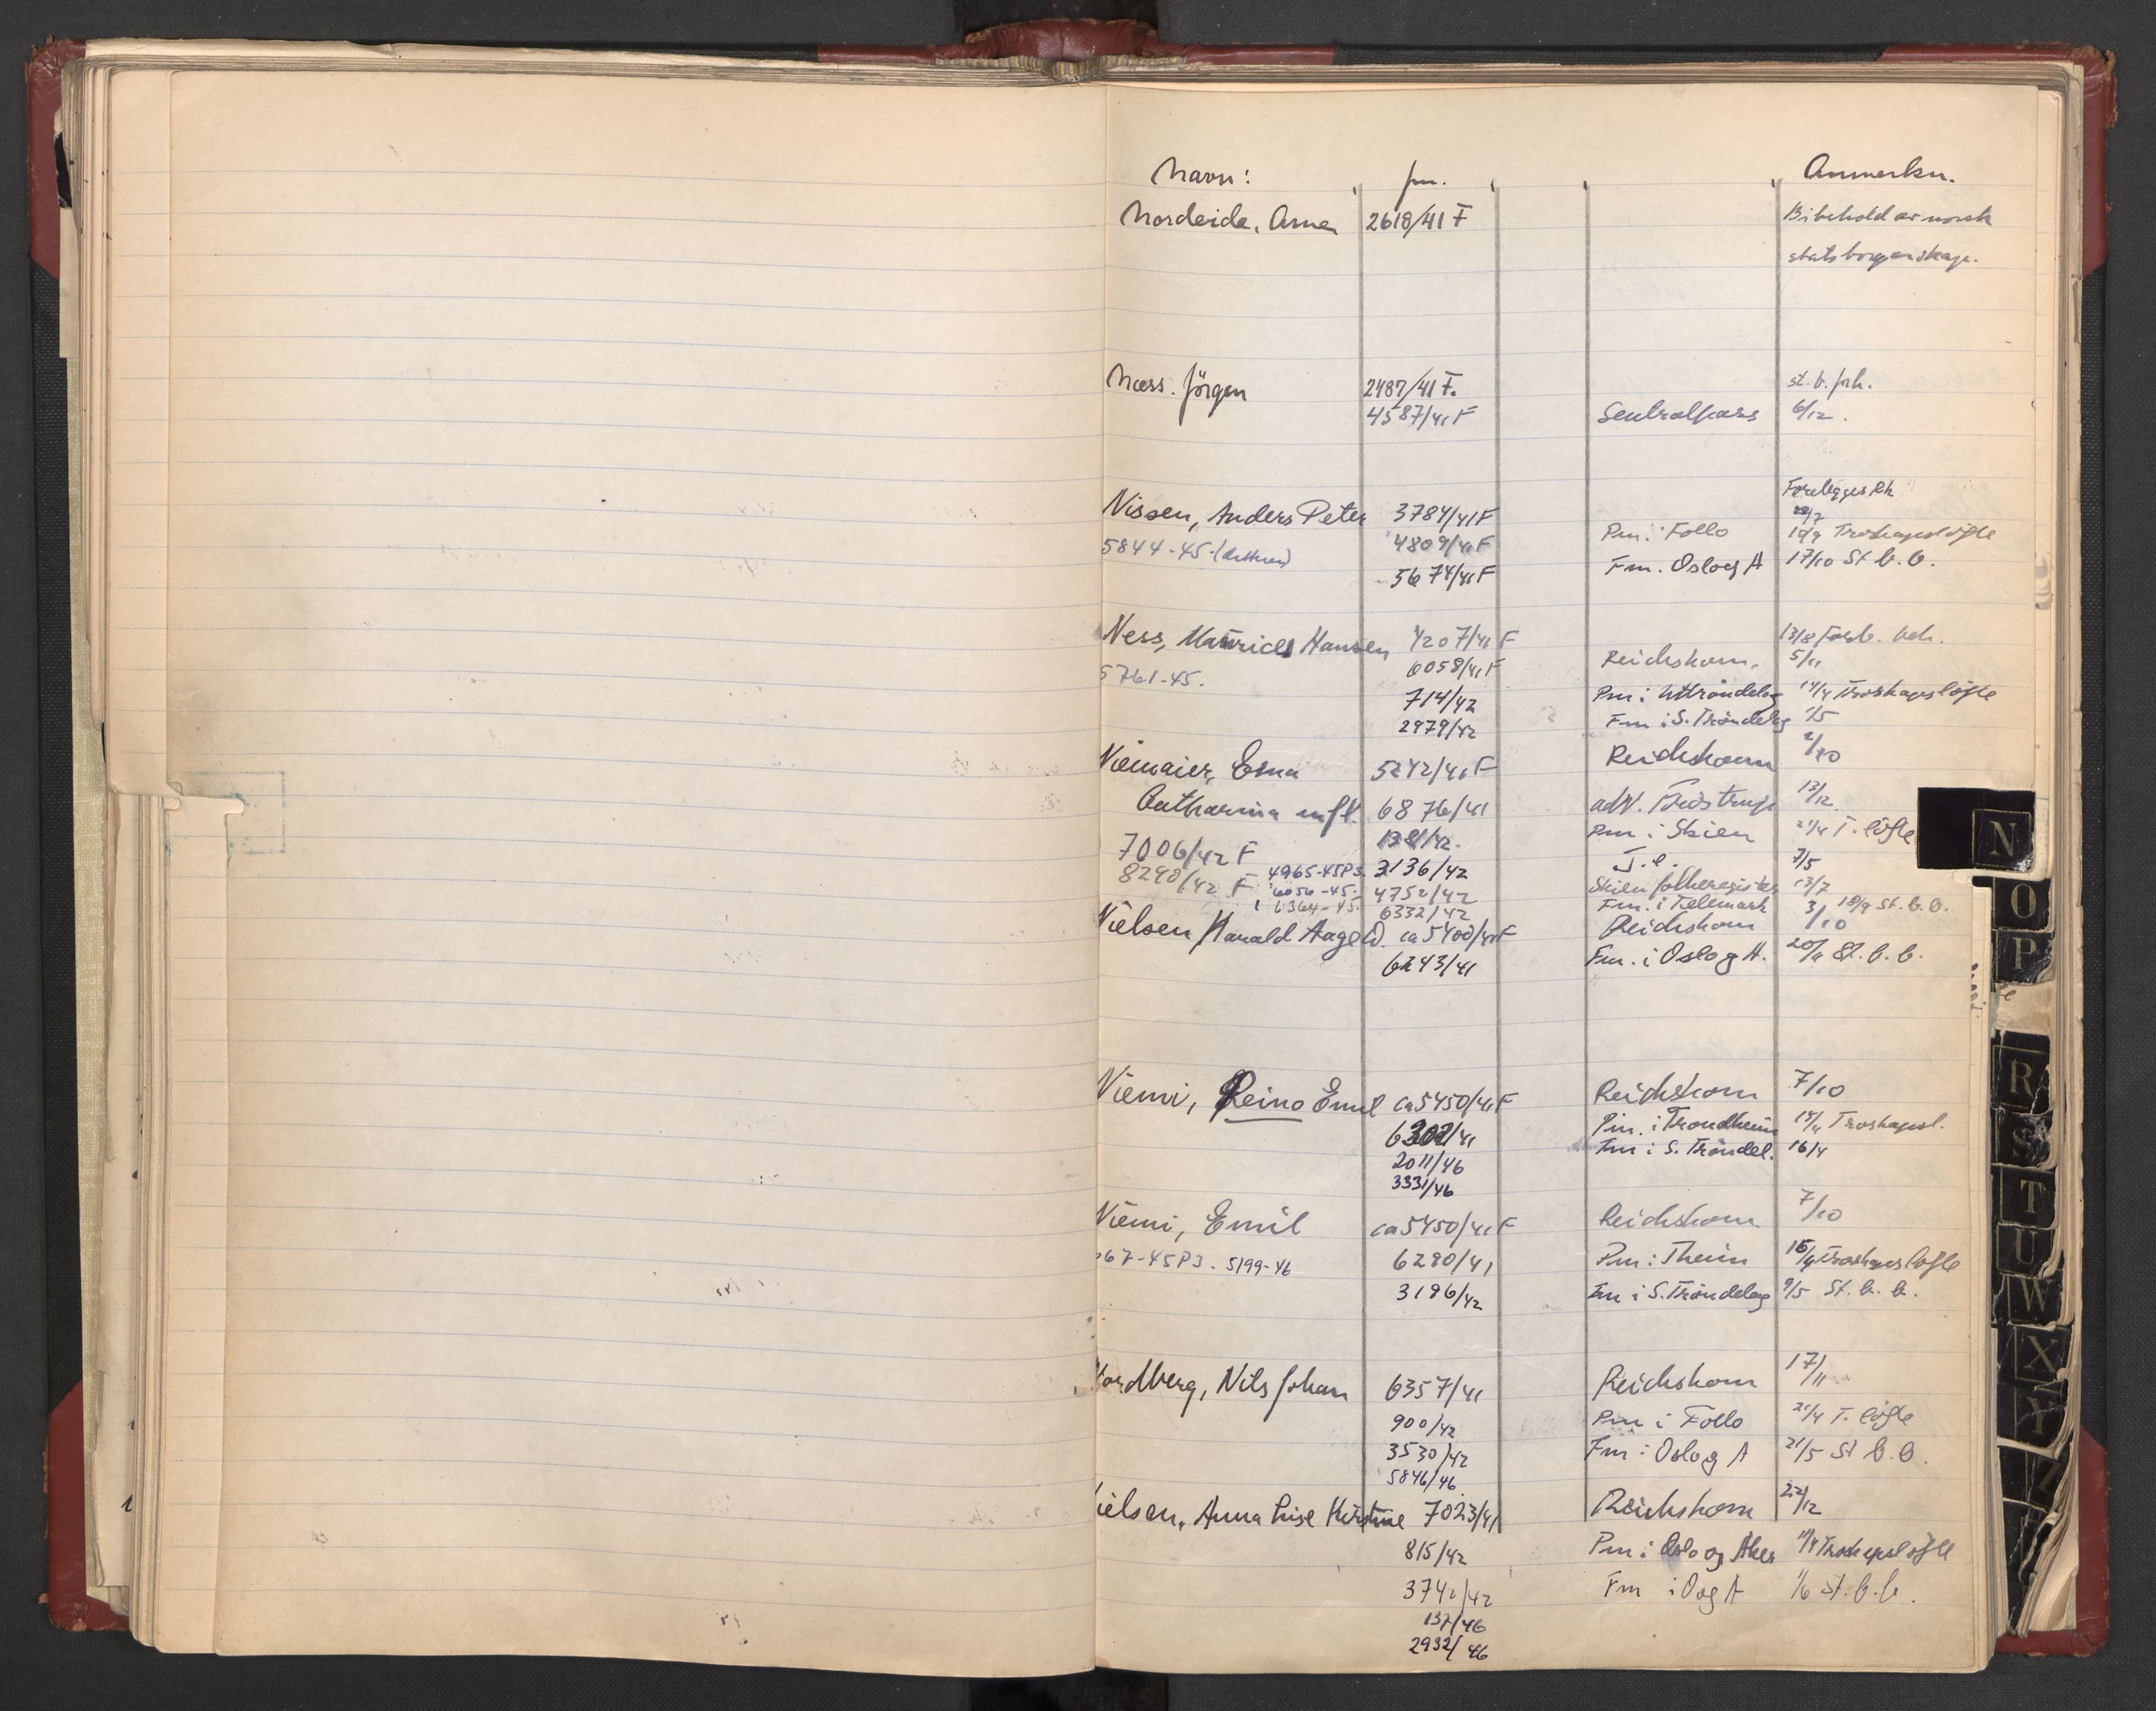 Navn: jnr. Anmerkn.
Nordeide, Arne 2618/41 F Bibehold av norsk
statsborgerskap.
Næss. Jörgen 2487/41 F. st. b. forh.
4587/41 F Sentralpass 6/12.
Forelegges Rk
Nissen, Anders Peter 3784/41 F 22/7
5844-45 4809/41 F Pm. i Follo 19/9 Troskapslöfte
5674/41 F Fm. Oslo og A 17/10 St b. b.
Ness, Hansen 4207/41 F 13/8
5761-45. 6058/41 F Reichskom. 5/11
714/42 Pm i Uttröndelag 14/4 Troskapslöfte
2979/42 Fm i S. Tröndelag 1/5
Niemaier, Erna 5242/41 F Reichskom 2/10
Catharina m/fl. 6876/41 adv. 13/12
7006/42 F 1381/42. Pm i Skien 21/4 T. löfte
8290/42 F 4965-45P3. 3136/42 J.d. 7/5
6056-45. 4752/42 Skien folkeregister 13/7
6364-45. 6332/42 Fm. i Telemark 18/9 St. b. b.
Nielsen Harald Aage D. ca 5400/41 F Reichskom 3/10
6243/41 Fm. i Oslo og A. 20/11 St. b. b.
Niemi, Reino Emil ca 5450/41 F Reichskom 7/10
6302/41 Pm. i Trondheim 15/4 Troskapsl.
2011/46 Fm i S. Tröndel. 16/4
3331/46
Niemi, Emil ca 5450/41 F Reichskom 7/10
67-45P3. 5199-46 6290/41 Pm i Theim 15/4 Troskapslöfte
3196/42 Fm i S. Tröndelag 9/5 St. b. b.
Nordberg, Nils Johan 6357/41 Reichskom 17/11
900/42 Pm i Follo 21/4 T. löfte
3530/42 Fm i Oslo og A 21/5 St b. b.
5846/46
ielsen, Anna Lise Kirstine 7023/41 Reichskom 22/12
815/42 Pm i Oslo og Aker 11/4 Troskapslöfte
3742/42 Fm i O og A 1/6 st. b. b.
137/46
2932/46
N
O
P
R
S
T
U
W
X
Y
Z